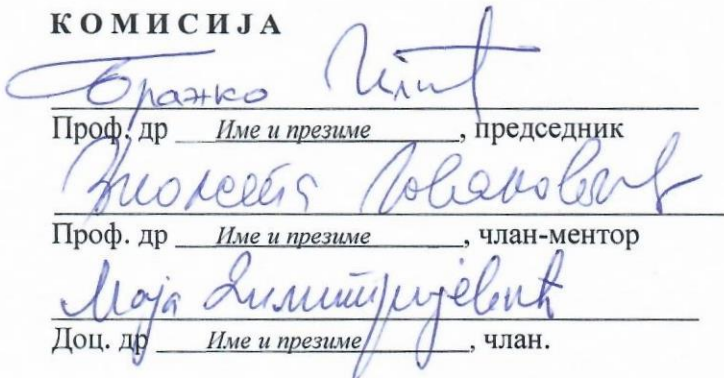 КОМИСИЈА
Бранко Илић
Проф. др Име и презиме, председник
Виолета Јовановић
Проф. др Име и презиме, члан-ментор
Маја Димитријевић
Доц. др Име и презиме, члан.